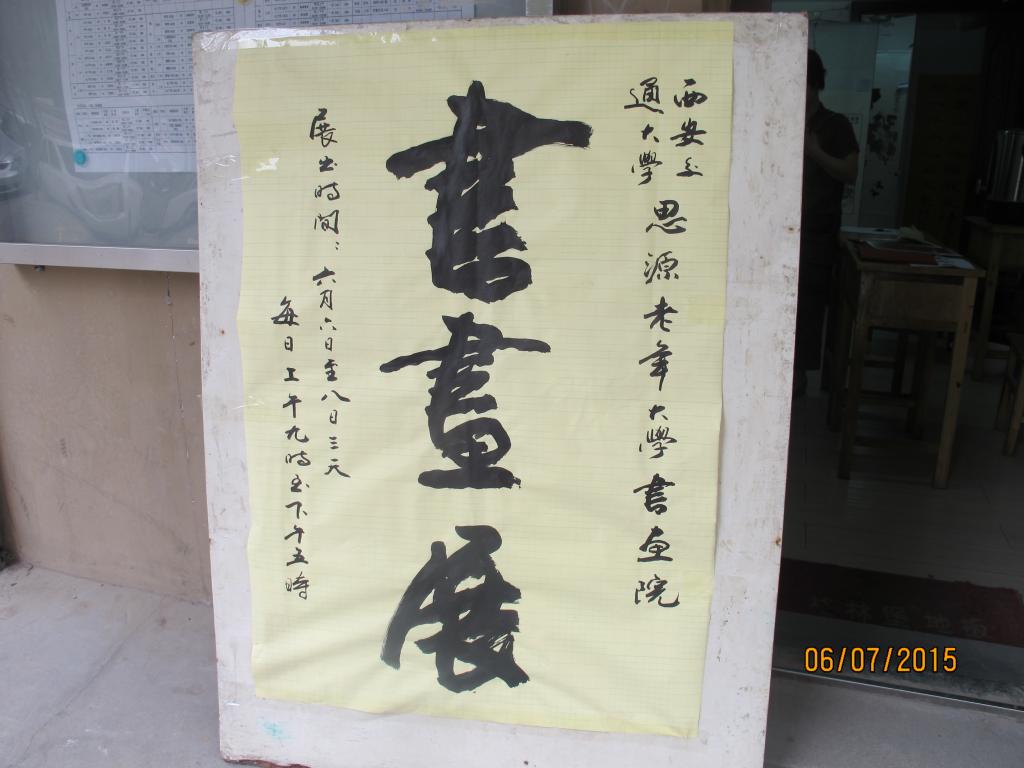 西安交
通大學
思源老年大學書画院
書畫展
展出時間：六月六日至八日三天
每日上午九時至下午五時
06/07/2015